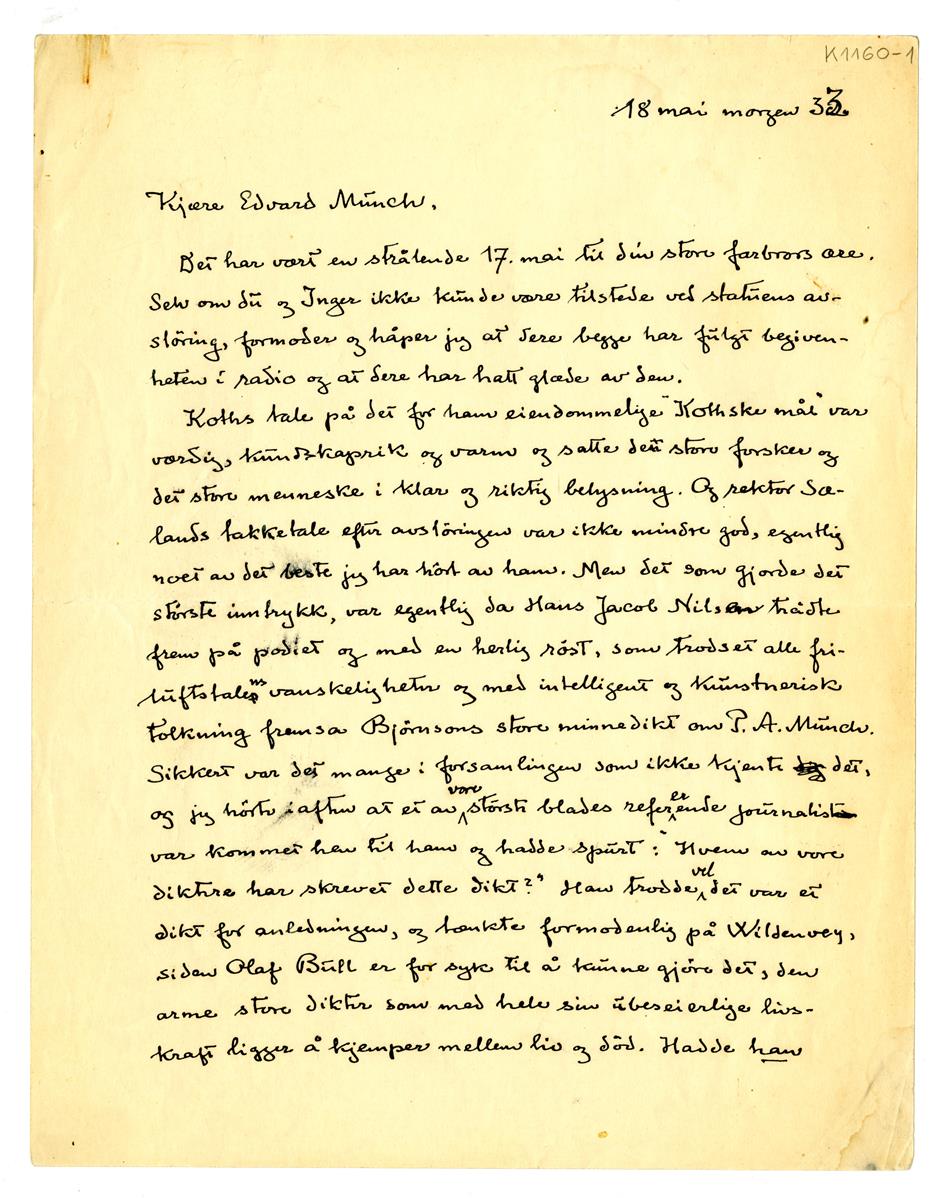 K1160-1
18 mai morgen 33
Kjære Edvard Münch,
Det har vært en strålende 17. mai til din store farbrors ære.
Selv om du og Inger ikke kunde være tilstede ved statuens av-
slöring, formoder og håper jeg at dere begge har fulgt begiven-
heten i radio og at dere har hatt glæde av den.
Koths tale på det for ham eiendommelige "Kothske mål" var
værdig, kundskaprik og varm og satte den store forsker og
det store menneske i klar og riktig belysning. Og rektor Sæ-
lands takketale efter avslöringen var ikke mindre god, egentlig
noet av det beste jeg har hört av ham. Men det som gjorde det
störste inntrykk, var egentlig da Hans Jacob Nilsen trådte
frem på podiet og med en herlig röst, som trodset alle fri-
luftstalens vanskeligheter og med intelligent og kunstnerisk
tolkning fremsa Björnsons store minnedikt om P. A. Münch.
Sikkert var det mange i forsamlingen som ikke kjente det,
og jeg hörte iaften at et av vore störste blades refererende journalist
var kommet hen til ham og hadde spurt: "Hvem av vore
diktere har skrevet dette dikt?" Han trodde vel det var et
dikt for anledningen, og tænkte formodenlig på Wildenvey,
siden Olaf Bull er for syk til å kunne gjöre det, den
arme store dikter som med hele sin ubeseierlige livs-
kraft ligger å kjemper mellem liv og död. Hadde han